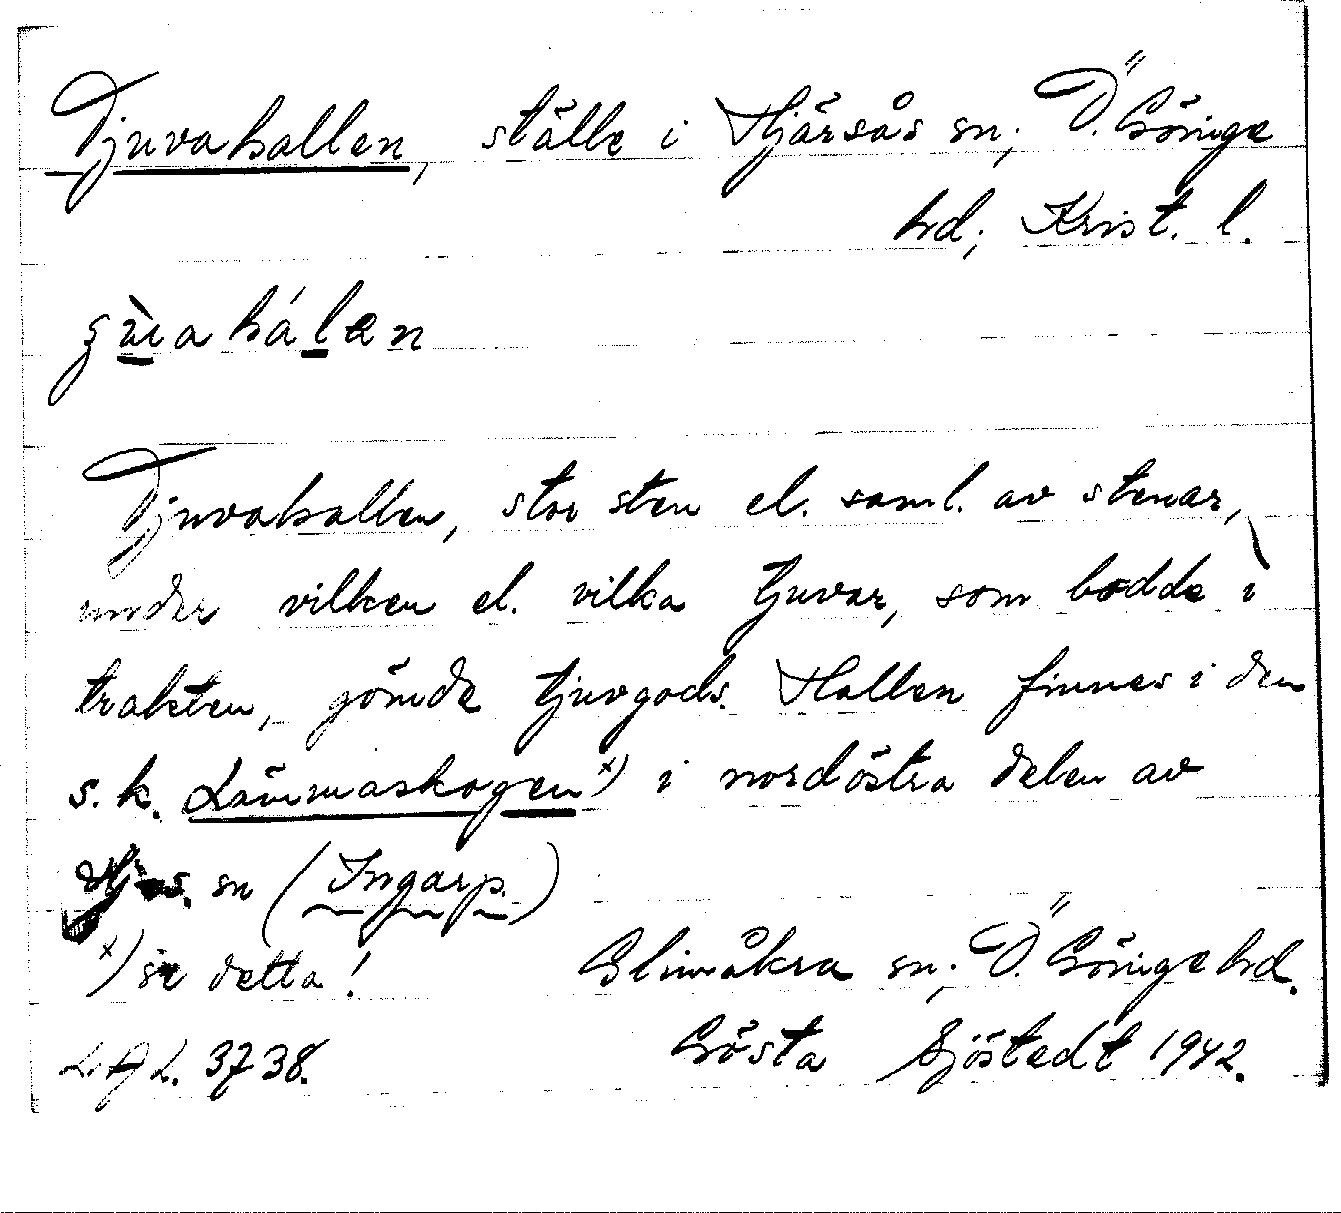 Tjuvahallen, ställe i Hjärsås sn; Ö. Göinge
hd; Krist. l.
Tjuvahallen, stor sten el. saml. av stenar,
under vilken el. vilka tjuvar, som bodde i
trakten, gömde tjuvgods. Hallen finnes i den
s.k. Lämmaskogen x) i nordöstra delen av
Hjs. sn (Ingarp.)
x) se detta!
Glimåkra sn; Ö. Göinge hd.
LAL. 3738.
Gösta Sjöstedt 1942.